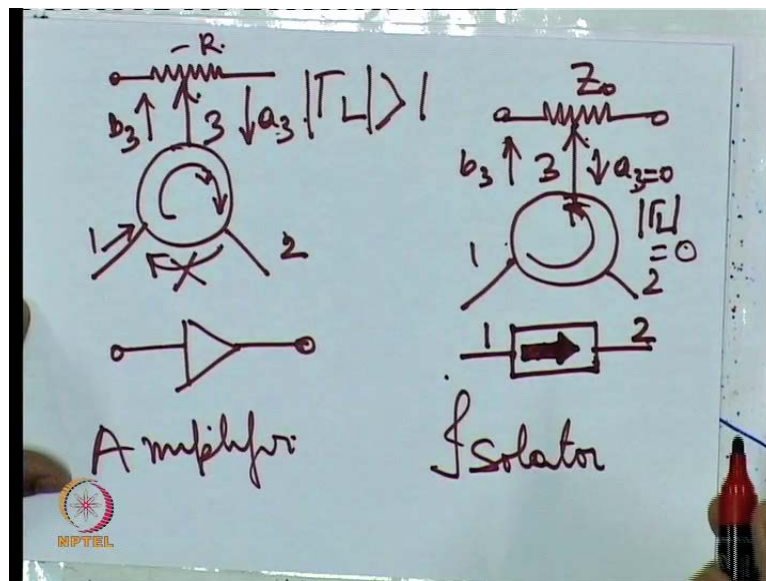 -R.
b₃ 3 a₃ |Γ_L| > 1
1 2
Amplifir
Z₀
b₃ 3 a₃=0
|Γ_L| = 0
1 2
1 2
Isolator
NPTEL